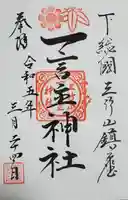 下総國三乃山鎮座
一言主神社
奉拝
令和五年
三月二十四日